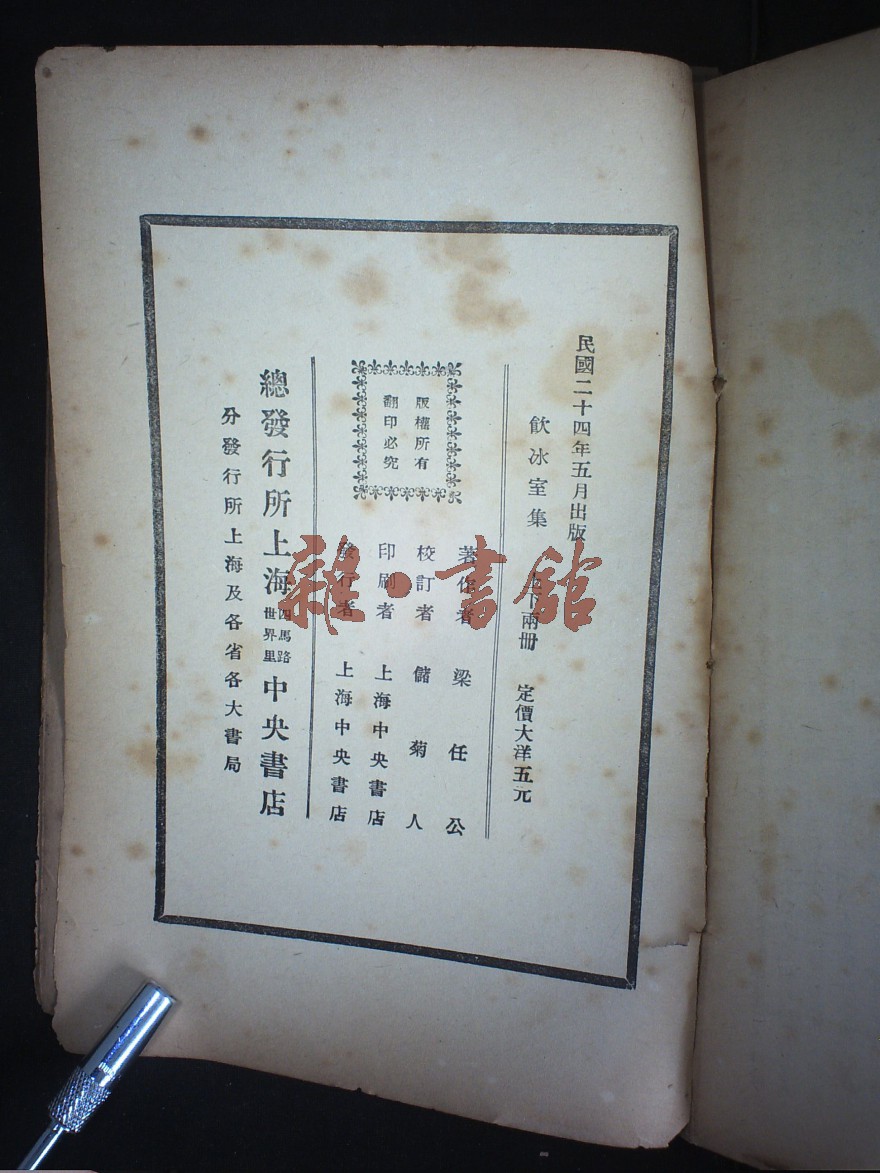 民國二十四年五月出版
飲冰室集 上下兩册 定價大洋五元
著作者 梁任公
校訂者 儲菊人
印刷者 上海中央書店
發行者 上海中央書店
版權所有
翻印必究
總發行所上海四馬路世界里中央書店
分發行所上海及各省各大書局
雜·書館